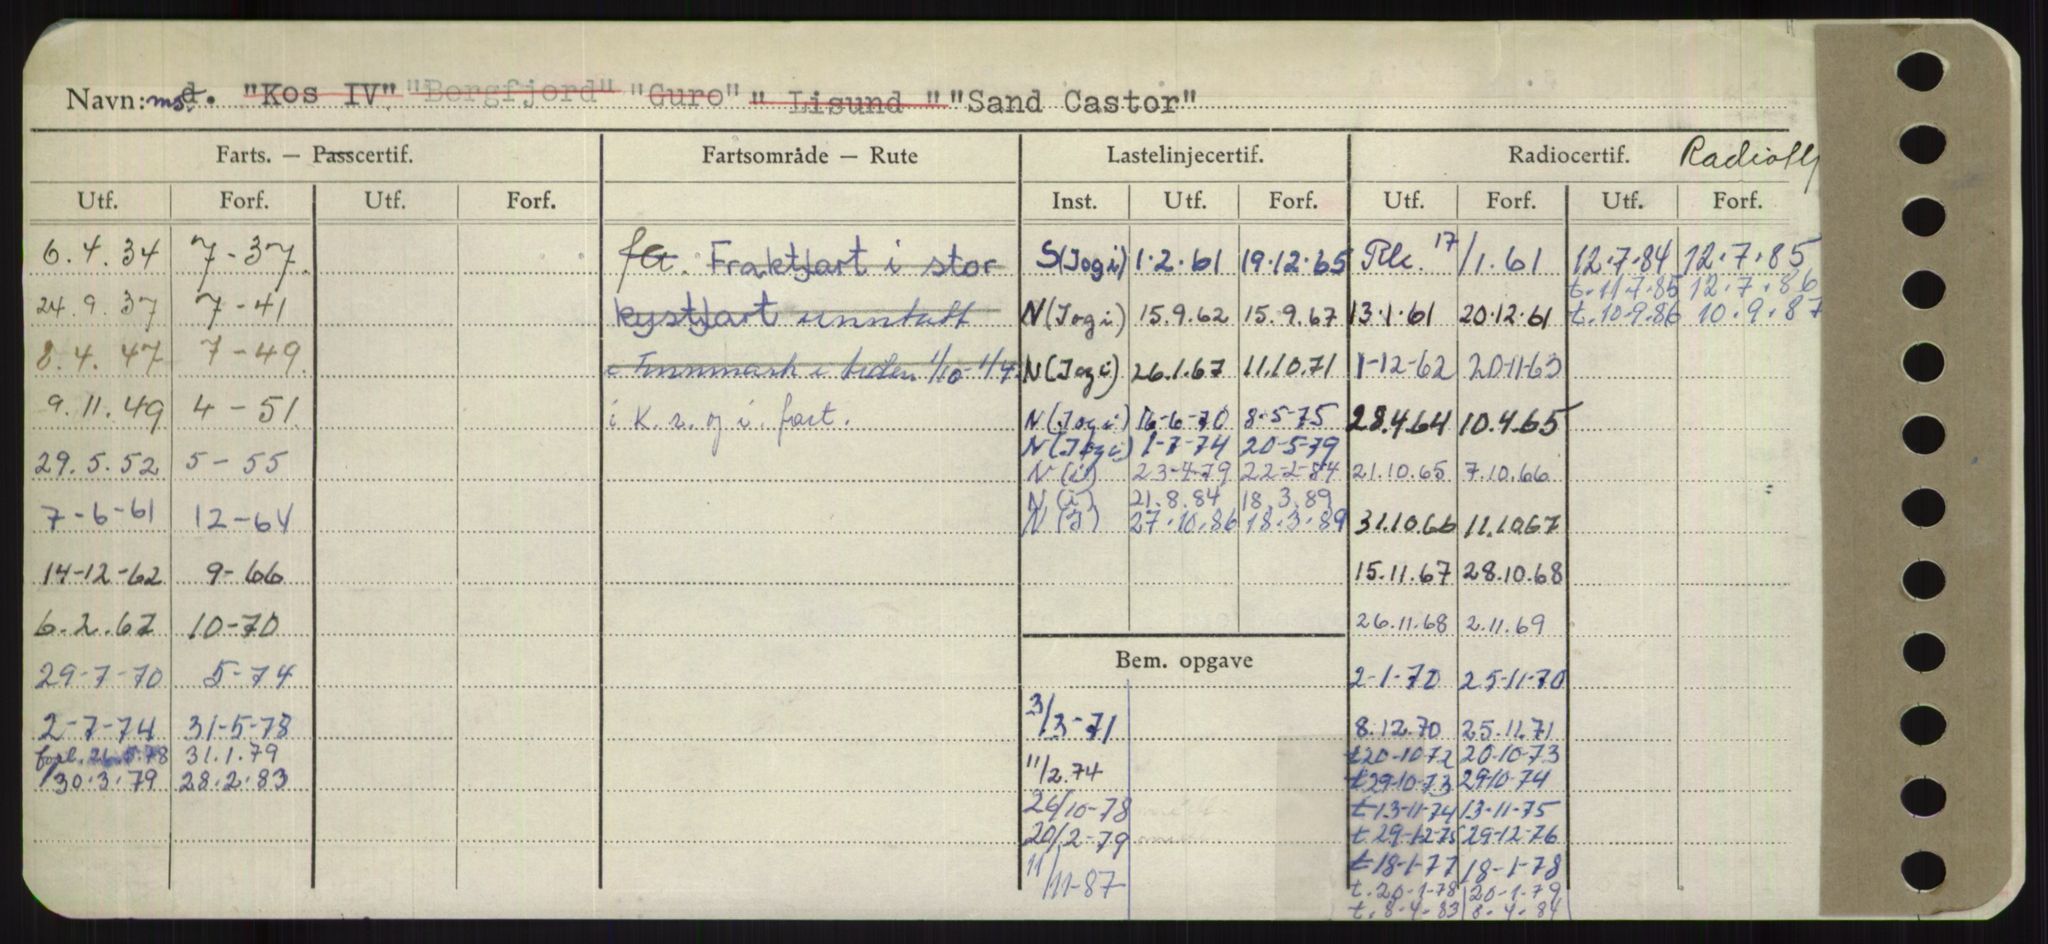 Navn: ms. "Kos IV" "Borgfjord" "Guro" " Lisund " "Sand Castor"
Farts. — Passcertif. Fartsområde — Rute Lastelinjecertif. Radiocertif. Radiotlf
Utf. Forf. Utf. Forf. Inst. Utf. Forf. Utf. Forf. Utf. Forf.
6.4.34 7-37 fa. Fraktfart i stor S(Jogi) 1.2.61 19.12.65 17/1.61 12.7.84 12.7.85
t.11.7.85 12.7.86
24.9.37 7-41 kystfart unntatt N(Jogi) 15.9.62 15.9.67 13.1.61 20.12.61 t.10.9.86 10.9.87
8.4.47 7-49 Finnmark i tiden 1/10-1/4 N(Jogi) 26.1.67 11.10.71 1-12-62 20-11-63
9.11.49 4-51 i K.r. og i. fart. N(Jogi) 16-6-70 8-5-75 28.4.64 10.4.65
N(Jogi) 1-7-74 20-5-79
29.5.52 5-55 N(i) 23-4-79 22-2-84 21.10.65 7.10.66
N(i) 21.8.84 18.3.89
7-6-61 12-64 27.10.86 18.3.89 31.10.66 11.10.67
14-12-62 9-66 15.11.67 28.10.68
6.2.67 10-70 26.11.68 2.11.69
Bem. opgave
29-7-70 5-74 2-1-70 25-11-70
2-7-74 31-5-78 3/3-71 8.12.70 25.11.71
forl. 26.5.78 31.1.79 t20-10-72 20-10-73
30.3.79 28.2.83 11/2.74 t29-10-73 29-10-74
26/10-78 t13-11-74 13-11-75
20/2-79 t29-12-75 29-12-76
11/11-87 t18-1-77 18-1-78
t.20-1-78 20-1-79
t.8-4-83 8-4-84